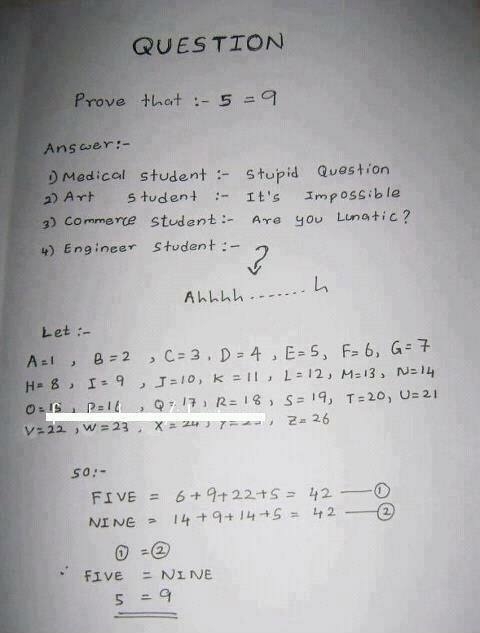 QUESTION
Prove that :- 5 = 9
Answer:-
1) Medical student :- Stupid Question
2) Art student :- It's Impossible
3) Commerce student:- Are you Lunatic?
4) Engineer student :- ?
Ahhhh.......h
Let :-
A=1, B=2, C=3, D=4, E=5, F=6, G=7
H=8, I=9, J=10, K=11, L=12, M=13, N=14
O=15, P=16, Q=17, R=18, S=19, T=20, U=21
V=22, W=23, X=24, Z=26
SO:-
FIVE = 6+9+22+5 = 42 — ①
NINE = 14+9+14+5 = 42 — ②
① = ②
∴ FIVE = NINE
5 = 9